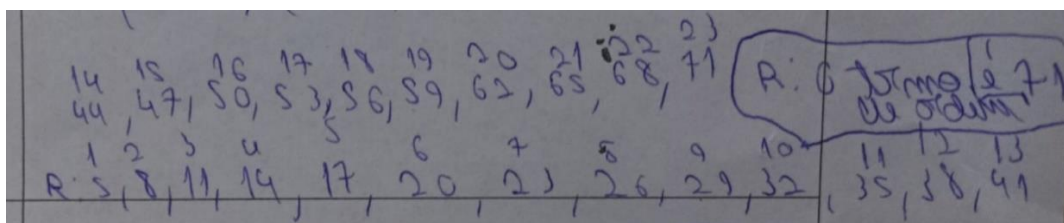 14 15 16 17 18 19 20 21 22 23
44, 47, 50, 53, 56, 59, 62, 65, 68, 71
R: O termo é 71
de ordem
1 2 3 4 5 6 7 8 9 10 11 12 13
R: 5, 8, 11, 14, 17, 20, 23, 26, 29, 32, 35, 38, 41